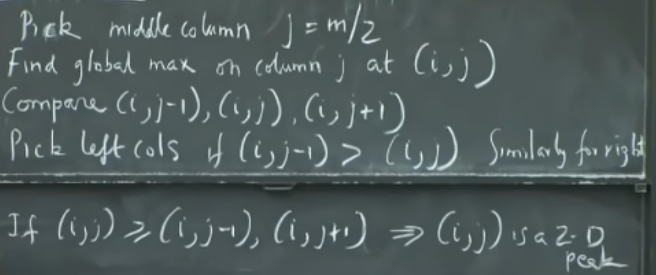 Pick middle column j = m/2
Find global max on column j at (i,j)
Compare (i,j-1), (i,j), (i,j+1)
Pick left cols if (i,j-1) > (i,j) Similarly for right
If (i,j) ≥ (i,j-1), (i,j+1) ⇒ (i,j) is a 2-D
peak